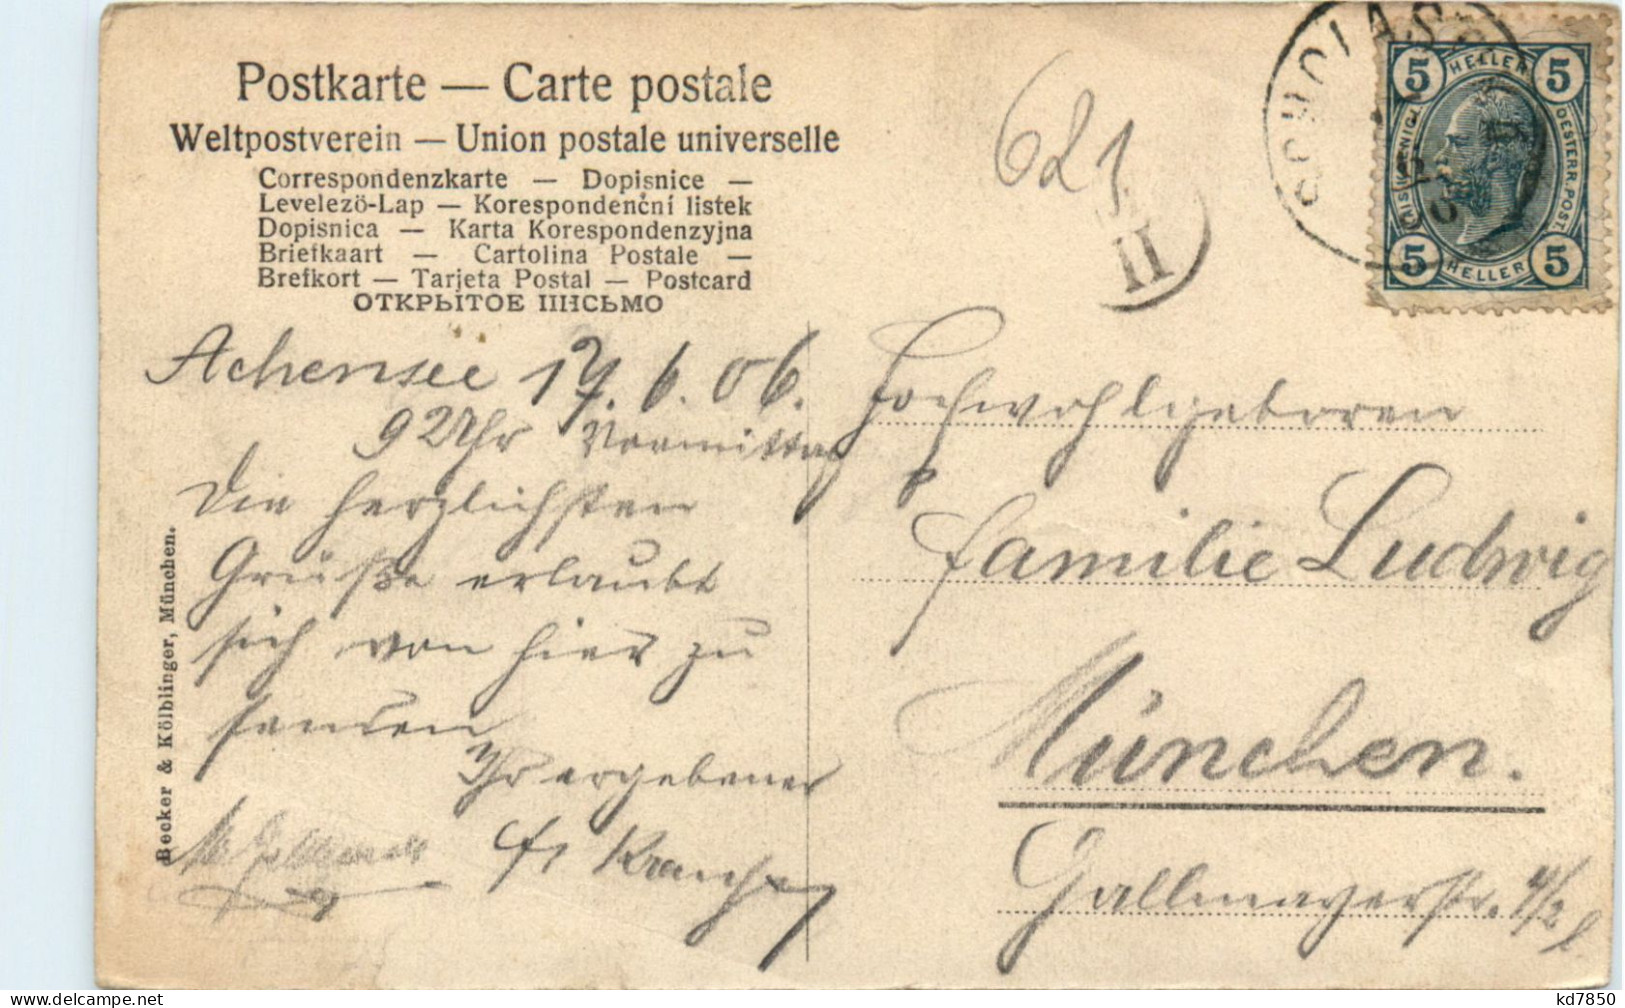 Postkarte — Carte postale
Weltpostverein — Union postale universelle
Correspondenzkarte — Dopisnice —
Levelezö-Lap — Korespondenční listek
Dopisnica — Karta Korespondenzyjna
Briefkaart — Cartolina Postale —
Brefkort — Tarjeta Postal — Postcard
ОТКРЫТОЕ ПИСЬМО
621
II
SCHOLAS
5 HELLER 5
OESTERR. POST
5 HELLER 5
Achensee 17. 6. 06.
9 Uhr Vormittag
Die herzlichsten
Grüße erlaubt
sich von hier zu
senden
Ihr ergebener
Hochwohlgeboren
Familie Ludwig
München.
Gallmayerstr. 4/2 l
Becker & Kölblinger, München.
kd7850